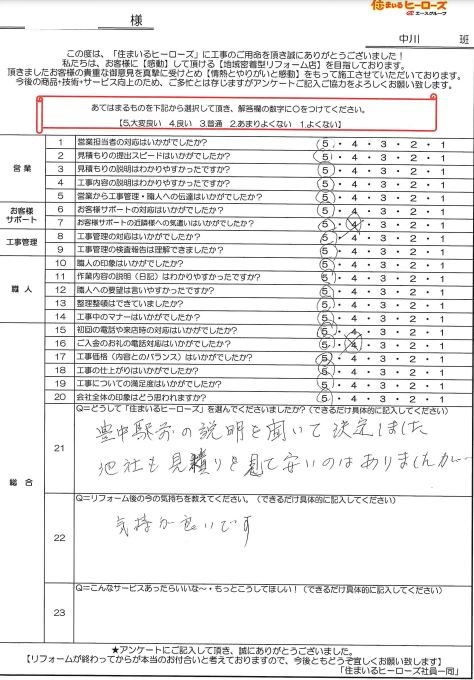 住まいるヒーローズ
エースグループ
様
中川 班
この度は、「住まいるヒーローズ」に工事のご用命を頂き誠にありがとうございました！
私たちは、お客様に【感動】して頂ける【地域密着型リフォーム店】を目指しております。
頂きましたお客様の貴重な御意見を真摯に受けとめ【情熱とやりがいと感動】をもって施工させていただいております。
今後の商品+技術+サービス向上のため、ご多忙とは存じますがアンケートにご記入ご協力をよろしくお願い致します。
あてはまるものを下記から選択して頂き、解答欄の数字に○をつけてください。
【5.大変良い 4.良い 3.普通 2.あまりよくない 1.よくない】
営業
1 営業担当者の対応はいかがでしたか? 5・4・3・2・1
2 見積もりの提出スピードはいかがでしたか? 5・4・3・2・1
3 見積もりの説明はわかりやすかったですか? 5・4・3・2・1
4 工事内容の説明はわかりやすかったですか? 5・4・3・2・1
5 営業から工事管理・職人への伝達はいかがでしたか? 5・4・3・2・1
お客様サポート
6 お客様サポートの対応はいかがでしたか? 5・4・3・2・1
7 お客様サポートの近隣様への気遣いはいかがでしたか? 5・4・3・2・1
工事管理
8 工事管理の対応はいかがでしたか? 5・4・3・2・1
9 工事管理の検査報告は理解できましたか? 5・4・3・2・1
職人
10 職人の印象はいかがでしたか? 5・4・3・2・1
11 作業内容の説明（日記）はわかりやすかったですか? 5・4・3・2・1
12 職人への要望は言いやすかったですか? 5・4・3・2・1
13 整理整頓はできていましたか? 5・4・3・2・1
14 工事中のマナーはいかがでしたか? 5・4・3・2・1
総合
15 初回の電話や来店時の対応はいかがでしたか? 5・4・3・2・1
16 ご入金のお礼の電話対応はいかがでしたか? 5・4・3・2・1
17 工事価格（内容とのバランス）はいかがでしたか? 5・4・3・2・1
18 工事の仕上がりはいかがでしたか? 5・4・3・2・1
19 工事についての満足度はいかがでしたか? 5・4・3・2・1
20 会社全体の印象はどう思われますか? 5・4・3・2・1
21 Q=どうして「住まいるヒーローズ」を選んでくださいましたか?（できるだけ具体的に記入してください）
豊中駅前の説明を聞いて決定しました
他社も見積りを見て安いのはありましたが…
22 Q=リフォーム後の今の気持ちを教えてください。（できるだけ具体的に記入してください）
気持が良いです
23 Q=こんなサービスあったらいいな〜・もっとこうしてほしい！（できるだけ具体的に記入してください）
★アンケートにご記入して頂き、誠にありがとうございました。
【リフォームが終わってからが本当のお付合いと考えておりますので、今後ともどうぞ宜しくお願い致します】
「住まいるヒーローズ社員一同」